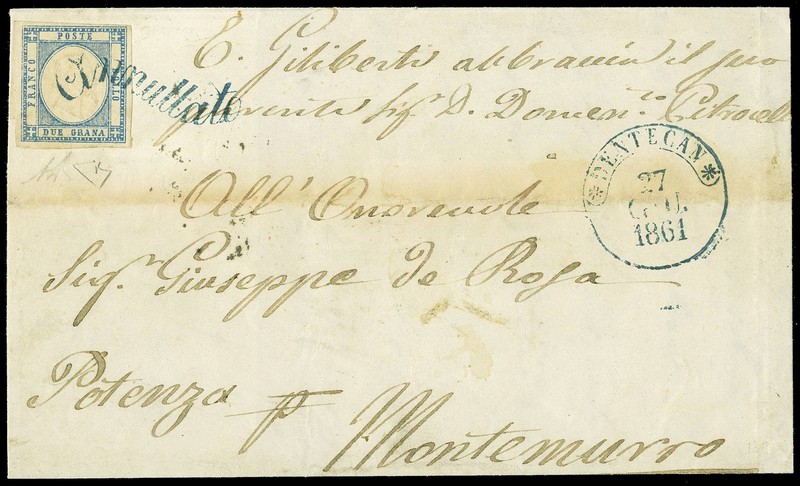 FRANCO
POSTE
BOLLO
DUE GRANA
Annullato
E. Giliberti abbraccia il suo
parente Sigr. D. Domenco. Petrocelli
DENTECAN
27
GIU.
1861
All' Onorevole
Sigr. Giuseppe de Rosa
Potenza p
Montemurro